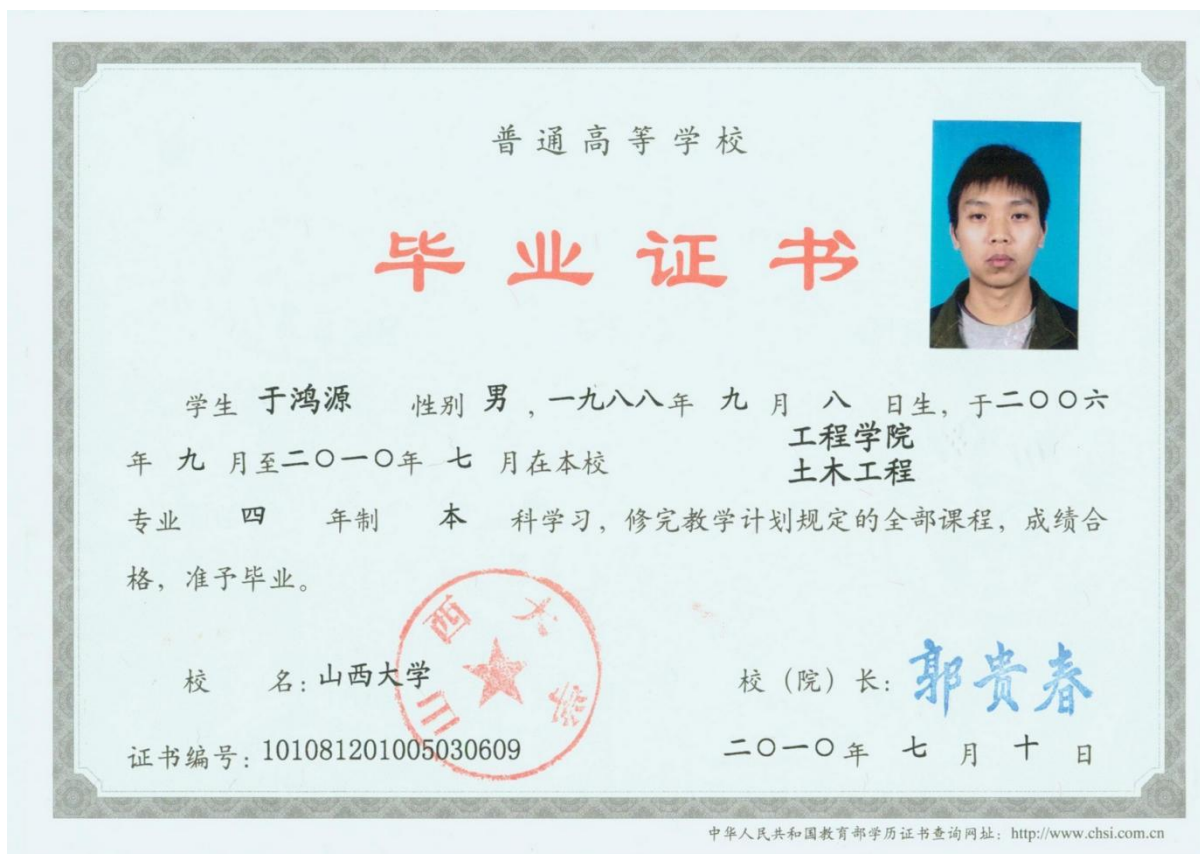 普通高等学校
毕业证书
学生 于鸿源 性别 男 ，一九八八年 九 月 八 日生，于二〇〇六
年 九 月至二〇一〇年 七 月在本校 工程学院
土木工程
专业 四 年制 本 科学习，修完教学计划规定的全部课程，成绩合
格，准予毕业。
山西大学
校 名：山西大学 校（院）长：郭贵春
证书编号：101081201005030609 二〇一〇年 七 月 十 日
中华人民共和国教育部学历证书查询网址：http://www.chsi.com.cn